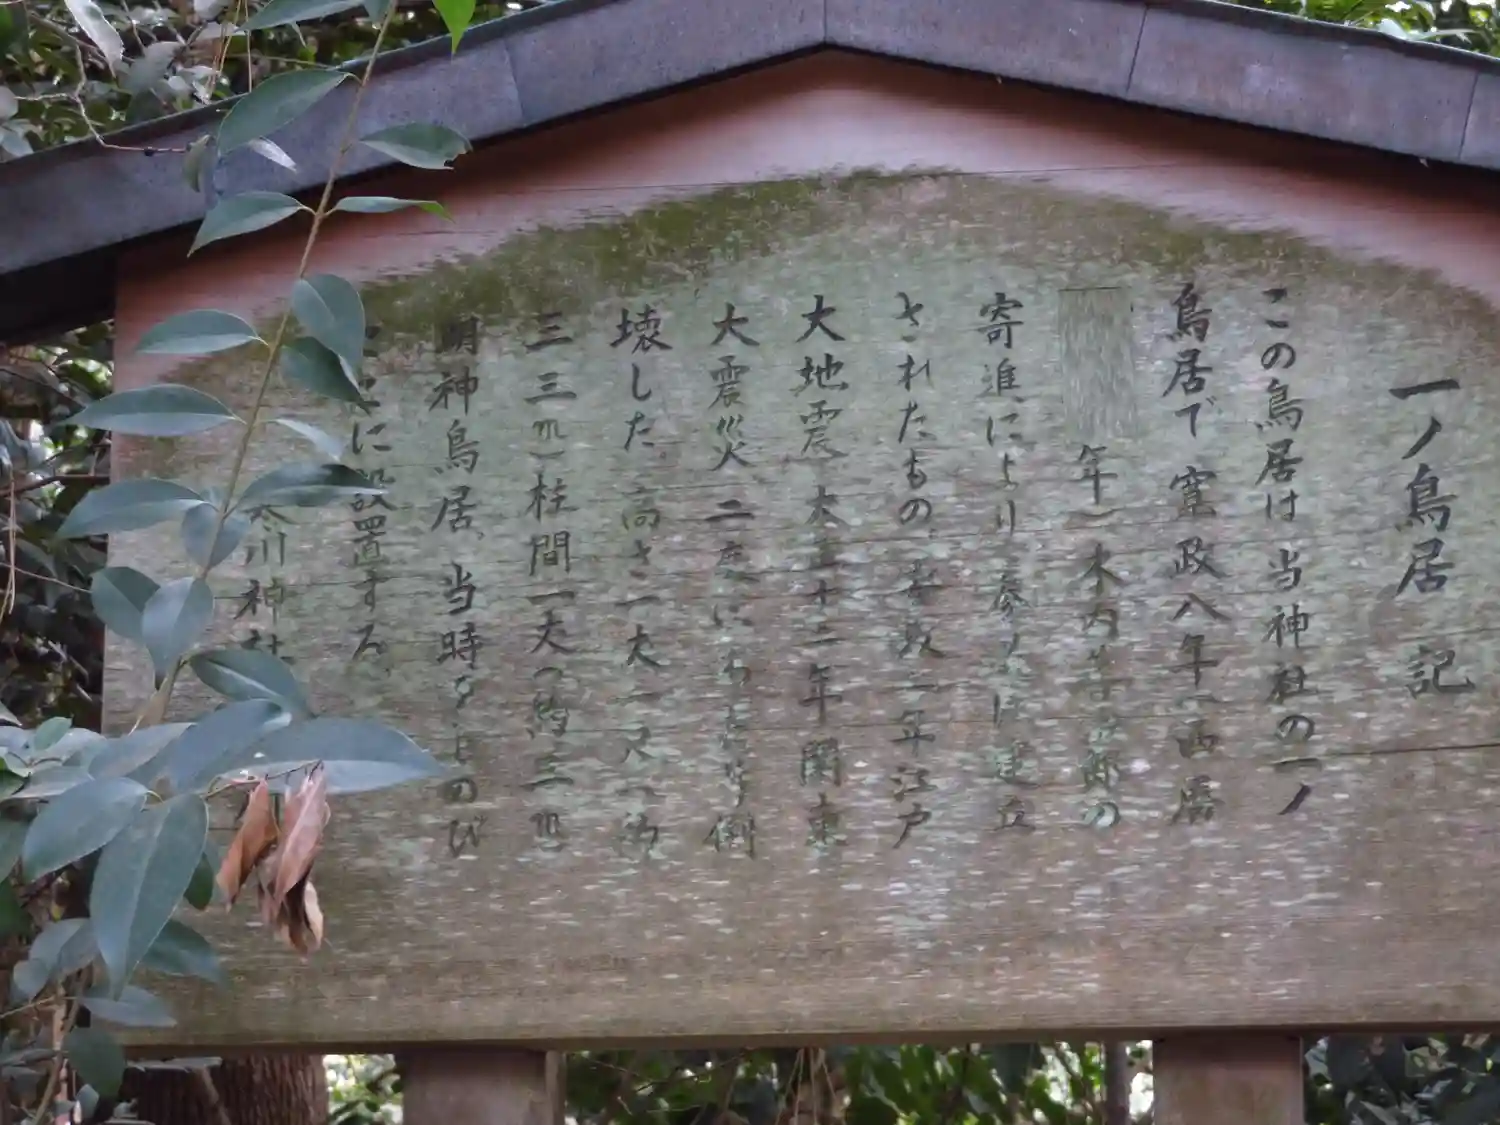 一ノ鳥居 記
この鳥居は当神社の一ノ
鳥居で寛政八年(西暦
年)木内 郎の
寄進により参 に建立
されたもの、安政二年江戸
大地震 大正十二年関東
大震災 二度にわたり倒
壊した 高さ一丈一尺(約
三三三㎝)柱間一丈(約三㎝
明神鳥居、当時をしのび
に設置する
川神社